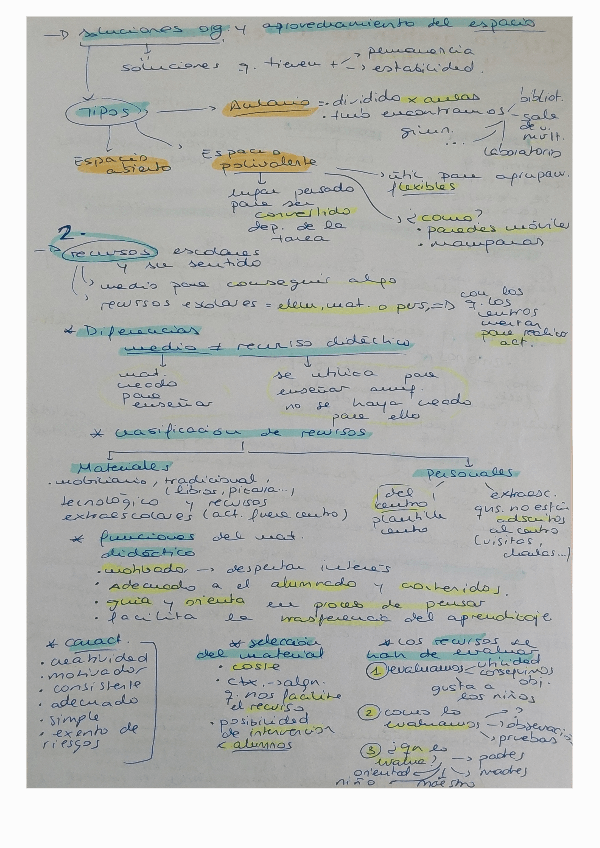 → soluciones org. y aprovechamiento del espacio
soluciones q. tienen + → permanencia
→ estabilidad.
Tipos → Aulario = dividido x aulas
· tmb encontramos
bibliot.
gimn. ...
laboratorio
Espacio abierto
Espacio polivalente
→ útil para agrupam. flexibles
lugar pensado
para ser
convertido
dep. de la
tarea
→ ¿como?
· paredes móviles
· mamparas
2.
→ recursos escolares
y su sentido
→ medio para conseguir algo
→ recursos escolares = elem, mat. o pers, =>
con los
q. los
centros
cuentan
para realizar
act.
* Diferencias
medio ≠ recurso didáctico
mat.
creado
para
enseñar
se utiliza para
enseñar aunq.
no se haya creado
para ello
* clasificación de recursos
Materiales
· mobiliario, tradicional,
(libros, pizarra...)
tecnológico y recursos
extraescolares (act. fuera centro)
Personales
del
centro
plantilla
centro
extraesc.
qns. no están
adscritos
al centro
(visitos,
charlas...)
* funciones del mat.
didáctico
· motivador → despertar interés
· Adecuado a el alumnado y contenidos.
· guía y orienta en proces. de pensar
· facilita la trasferencia del aprendizaje
* caract.
· creatividad
· motivador
· consistente
· adecuado
· simple
· exento de
riesgos
* selección
del material
· coste
q. nos facilite
el recurso
· posibilidad
de intervención
x alumnos
* Los recursos se
han de evaluar
1 evaluamos
utilidad
conseguimos
obj.
gusta a
los niños
2 como lo
evaluamos
→ ?
→ observación
→ pruebas
3 ¿qn lo
evalua?
→ padres
→ madres
maestro
orientad.
niño